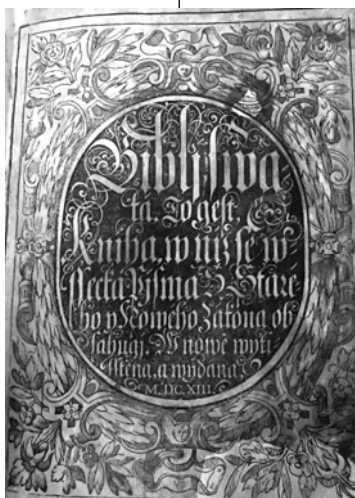 Biblj swa-
tá. To gest.
Kniha, w njž se w
ssecka Pjsma S. Staré-
ho y Nowého Zákona ob-
sahugj. W nowě wyti-
sstěna, a wydaná.
M. DC. XIII.